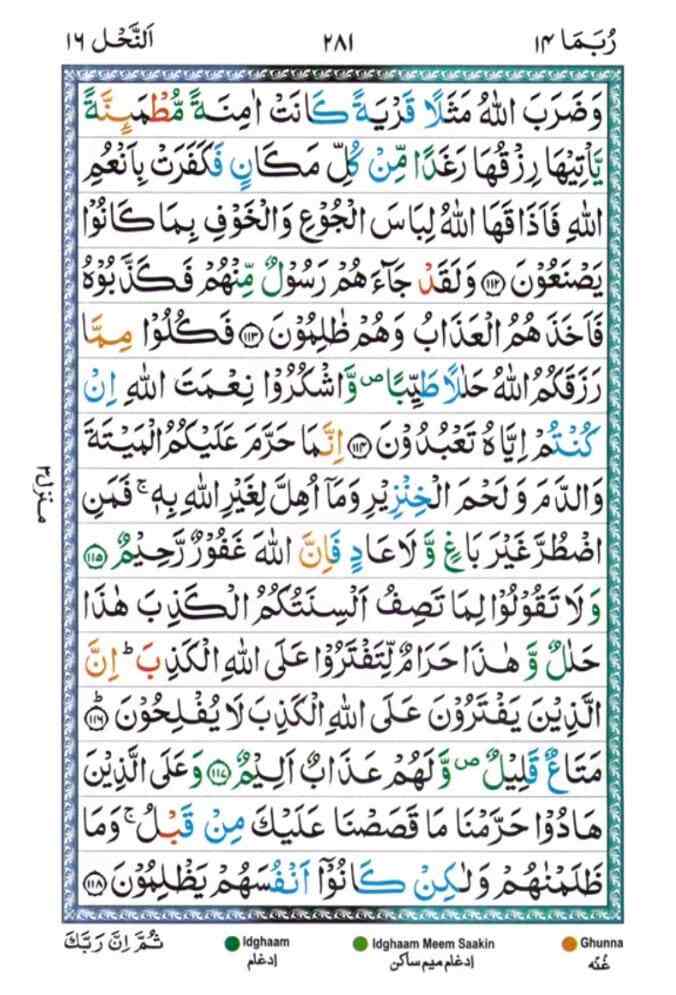 رُبَمَا ١٤
٢٨١
اَلنَّحْل ١٦
وَضَرَبَ اللّٰهُ مَثَلًا قَرْيَةً كَانَتْ اٰمِنَةً مُّطْمَىِٕنَّةً
يَّاْتِيْهَا رِزْقُهَا رَغَدًا مِّنْ كُلِّ مَكَانٍ فَكَفَرَتْ بِاَنْعُمِ
اللّٰهِ فَاَذَاقَهَا اللّٰهُ لِبَاسَ الْجُوْعِ وَالْخَوْفِ بِمَا كَانُوْا
يَصْنَعُوْنَ ۝١١٢ وَلَقَدْ جَآءَهُمْ رَسُوْلٌ مِّنْهُمْ فَكَذَّبُوْهُ
فَاَخَذَهُمُ الْعَذَابُ وَهُمْ ظٰلِمُوْنَ ۝١١٣ فَكُلُوْا مِمَّا
رَزَقَكُمُ اللّٰهُ حَلٰلًا طَيِّبًا ص وَّاشْكُرُوْا نِعْمَتَ اللّٰهِ اِنْ
كُنْتُمْ اِيَّاهُ تَعْبُدُوْنَ ۝١١٤ اِنَّمَا حَرَّمَ عَلَيْكُمُ الْمَيْتَةَ
وَالدَّمَ وَلَحْمَ الْخِنْزِيْرِ وَمَآ اُهِلَّ لِغَيْرِ اللّٰهِ بِهٖ ۚ فَمَنِ
اضْطُرَّ غَيْرَ بَاغٍ وَّلَا عَادٍ فَاِنَّ اللّٰهَ غَفُوْرٌ رَّحِيْمٌ ۝١١٥
وَلَا تَقُوْلُوْا لِمَا تَصِفُ اَلْسِنَتُكُمُ الْكَذِبَ هٰذَا
حَلٰلٌ وَّهٰذَا حَرَامٌ لِّتَفْتَرُوْا عَلَى اللّٰهِ الْكَذِبَ ؕ اِنَّ
الَّذِيْنَ يَفْتَرُوْنَ عَلَى اللّٰهِ الْكَذِبَ لَا يُفْلِحُوْنَ ؕ۝١١٦
مَتَاعٌ قَلِيْلٌ ص وَّلَهُمْ عَذَابٌ اَلِيْمٌ ۝١١٧ وَعَلَى الَّذِيْنَ
هَادُوْا حَرَّمْنَا مَا قَصَصْنَا عَلَيْكَ مِنْ قَبْلُ ۚ وَمَا
ظَلَمْنٰهُمْ وَلٰكِنْ كَانُوْٓا اَنْفُسَهُمْ يَظْلِمُوْنَ ۝١١٨
منزل ٣
ثُمَّ اِنَّ رَبَّكَ
Idghaam
ادغام
Idghaam Meem Saakin
ادغام میم ساکن
Ghunna
غُنّه